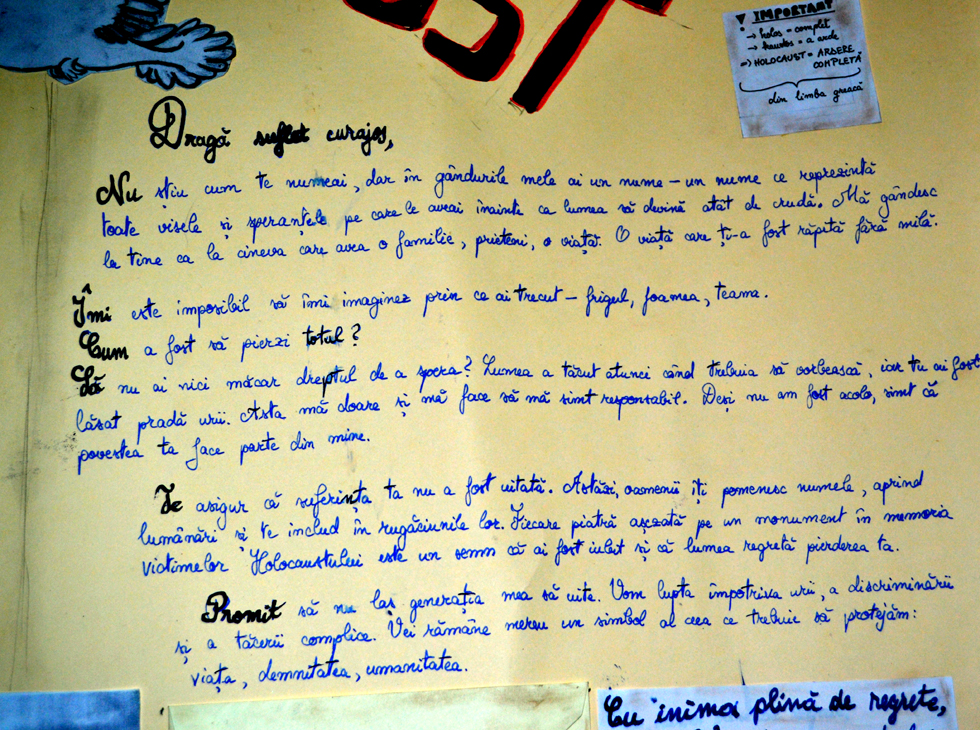 ST
▼ IMPORTANT
→ holos = complet
→ kaustos = a arde
=> HOLOCAUST = ARDERE
COMPLETĂ
din limba greacă
Dragă suflet curajos,
Nu știu cum te numeai, dar în gândurile mele ai un nume – un nume ce reprezintă
toate visele și speranțele pe care le aveai înainte ca lumea să devină atât de crudă. Mă gândesc
la tine ca la cineva care avea o familie, prieteni, o viață. O viață care ți-a fost răpită fără milă.
Îmi este imposibil să îmi imaginez prin ce ai trecut – frigul, foamea, teama.
Cum a fost să pierzi totul?
Să nu ai nici măcar dreptul de a spera? Lumea a tăcut atunci când trebuia să vorbească, iar tu ai fost
lăsat pradă urii. Asta mă doare și mă face să mă simt responsabil. Deși nu am fost acolo, simt că
povestea ta face parte din mine.
Te asigur că suferința ta nu a fost uitată. Astăzi, oamenii îți pomenesc numele, aprind
lumânări și te includ în rugăciunile lor. Fiecare piatră așezată pe un monument în memoria
victimelor Holocaustului este un semn că ai fost iubit și că lumea regretă pierderea ta.
Promit să nu las generația mea să uite. Vom lupta împotriva urii, a discriminării
și a tăcerii complice. Vei rămâne mereu un simbol al ceea ce trebuie să protejăm:
viața, demnitatea, umanitatea.
Cu inima plină de regrete,